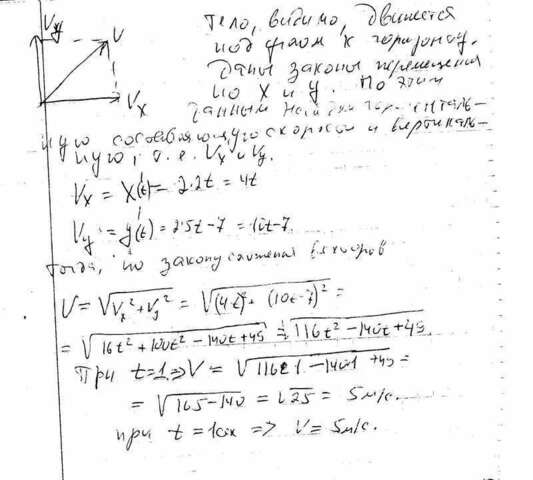 Vy V
Vx
Тело, видимо, движется
под углом к горизонту.
Даны законы перемещения
по X и y. По этим
данным найдём горизонталь-
ную составляющую скорости и вертикаль-
ную, т.е. Vx и Vy.
Vx = X'(t) = 2·2t = 4t
Vy = y'(t) = 2·5t - 7 = 10t - 7
Тогда, по закону сложения векторов
V = √(Vx² + Vy²) = √((4t)² + (10t - 7)²) =
= √(16t² + 100t² - 140t + 49) = √(116t² - 140t + 49).
При t = 1 => V = √(116·1 - 140·1 + 49) =
= √(165 - 140) = √25 = 5 м/с.
при t = 1 сек => V = 5 м/с.